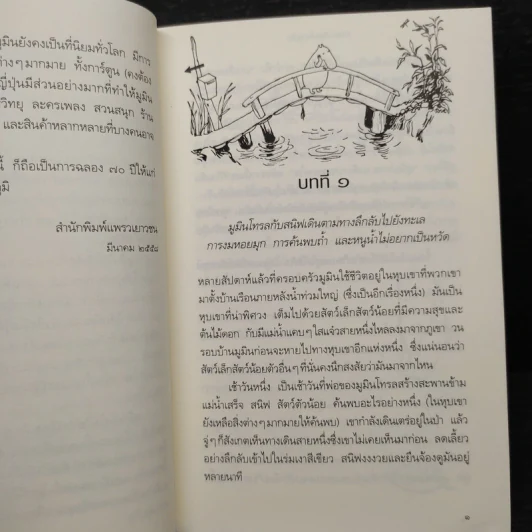 มูมินยังคงเป็นที่นิยมทั่วโลก มีการ
ต่างๆมากมาย ทั้งการ์ตูน (คงต้อง
ญี่ปุ่นมีส่วนอย่างมากที่ทำให้มูมิน
วิทยุ ละครเพลง สวนสนุก ร้าน
และสินค้าหลากหลายที่บางคนอาจ
นี้ ก็ถือเป็นการฉลอง ๗๐ ปีให้แก่
สำนักพิมพ์แพรวเยาวชน
มีนาคม ๒๕๕๘
บทที่ ๑
มูมินโทรลกับสนิฟเดินตามทางลึกลับไปยังทะเล
การงมหอยมุก การค้นพบถ้ำ และหนูน้ำไม่อยากเป็นหวัด
หลายสัปดาห์แล้วที่ครอบครัวมูมินใช้ชีวิตอยู่ในหุบเขาที่พวกเขา
มาตั้งบ้านเรือนภายหลังน้ำท่วมใหญ่ (ซึ่งเป็นอีกเรื่องหนึ่ง) มันเป็น
หุบเขาที่น่าพิศวง เต็มไปด้วยสัตว์เล็กสัตว์น้อยที่มีความสุขและ
ต้นไม้ดอก กับมีแม่น้ำแคบๆใสแจ๋วสายหนึ่งไหลลงมาจากภูเขา วน
รอบบ้านมูมินก่อนจะหายไปทางหุบเขาอีกแห่งหนึ่ง ซึ่งแน่นอนว่า
สัตว์เล็กสัตว์น้อยตัวอื่นๆที่นั่นคงนึกสงสัยว่ามันมาจากไหน
เช้าวันหนึ่ง เป็นเช้าวันที่พ่อของมูมินโทรลสร้างสะพานข้าม
แม่น้ำเสร็จ สนิฟ สัตว์ตัวน้อย ค้นพบอะไรอย่างหนึ่ง (ในหุบเขา
ยังเหลือสิ่งต่างๆมากมายให้ค้นพบ) เขากำลังเดินเตร่อยู่ในป่า แล้ว
จู่ๆก็สังเกตเห็นทางเดินสายหนึ่งซึ่งเขาไม่เคยเห็นมาก่อน ลดเลี้ยว
อย่างลึกลับเข้าไปในร่มเงาสีเขียว สนิฟงงงวยและยืนจ้องดูมันอยู่
หลายนาที
๑